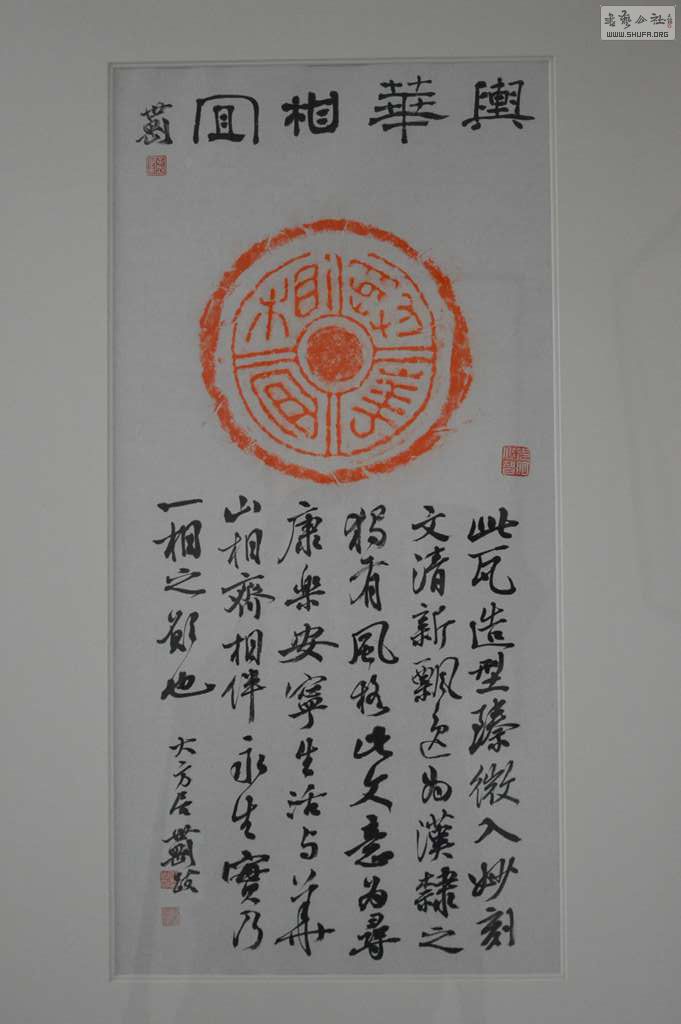 書藝公社
WWW.SHUFA.ORG
與華相宜
與華相宜
此瓦造型臻微入妙刻
文清新飄逸为漢隸之
獨有風格此文意为尋
康樂安寧生活与華
山相齊相伴永生實乃
一相之也
大方居世跋